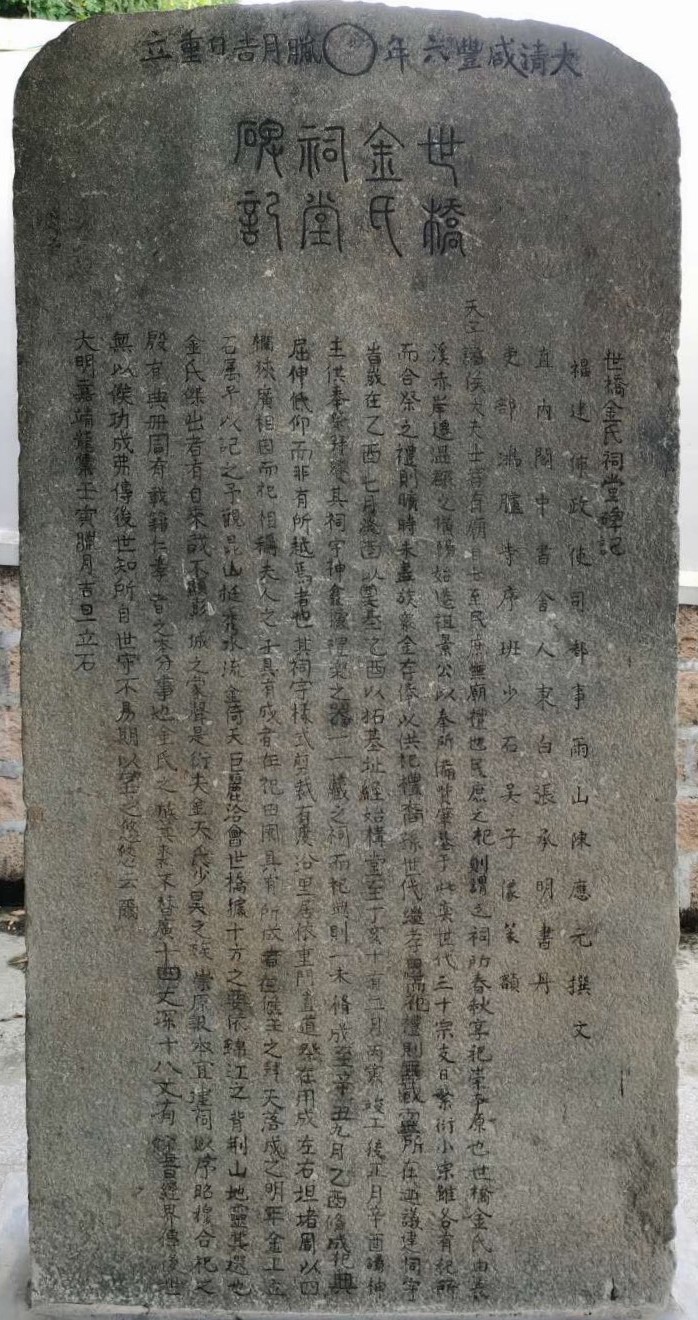 大清咸豐六年臘月吉日重立
世橋
金氏
祠堂
碑記
世橋金氏祠堂碑記
福建佈政使司都事雨山陳應元撰文
直內閣中書舍人東白張承明書丹
吏部鴻臚寺序班少石吳子儀篆額
諸侯大夫士皆有廟自士至民庶無廟禮也民庶之祀則謂之祠所春秋享祀崇本原也世橋金氏由
溪赤岸遷溫郡之橫陽始遷祖景公以奉所備肇基于此奕世代三十宗支日繁衍小宗雖各有祀所
而合祭之禮則曠時未盡族衆金存僚以供祀禮裔孫世代繼孝祀禮則無或寧所在西議建祠宇
歲在乙酉七月以奠基乙酉以拓基址經始構堂至丁亥十有二月丙寅竣工後正月辛酉請神
主供奉祭拜其祠宇神龕禮樂之器一一藏之祠而祀典則一未脩成至辛丑九月乙酉脩成祀典
屈伸俯仰而非有所越焉者也其祠宇樣式剪裁有度浴里居依重門直道在用成左右坦堵周以四
狹廣相因而祀相稱夫人之士具有成者在祀田園具有所依者在候主之拜天落成之明年金工立
石屬予以記之予觀崑山挺水流金倚天巨麗洽會世橋據十方之依綿江之背荆山地靈其選也
金氏傑出者有自來哉不顯彭城之家聲是衍夫金天氏少昊之族崇原報本宜建祠以序昭穆合祀之
殷有典冊周有載籍仁孝者之本分事也金氏之成其來不替廣十四丈深十八丈有經界傳後世
無以俟功成弗傳後世知所自世守不易期以望之悠悠云爾
大明嘉靖龍集壬寅臘月吉旦立石